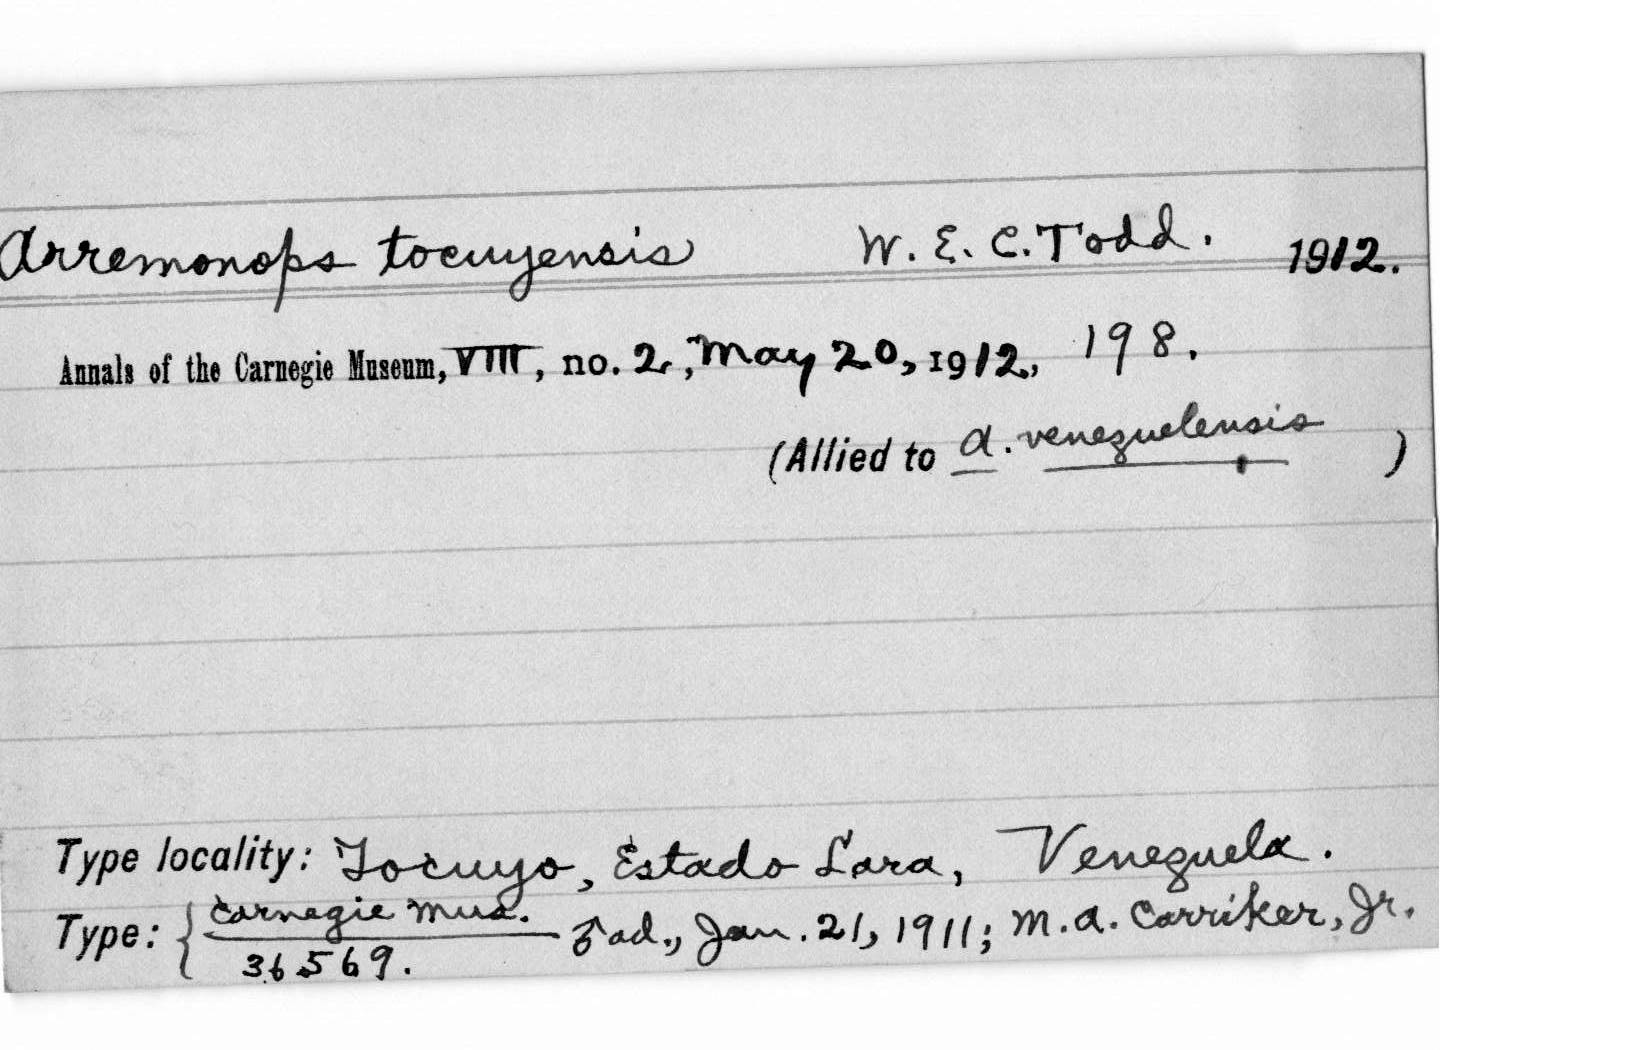 Arremonops tocuyensis W. E. C. Todd. 1912.
Annals of the Carnegie Museum, VIII, no. 2, May 20, 1912, 198.
(Allied to A. venezuelensis)
Type locality: Tocuyo, Estado Lara, Venezuela.
Type: { Carnegie Mus. ad., Jan. 21, 1911; M. A. Carriker, Jr.
36569.